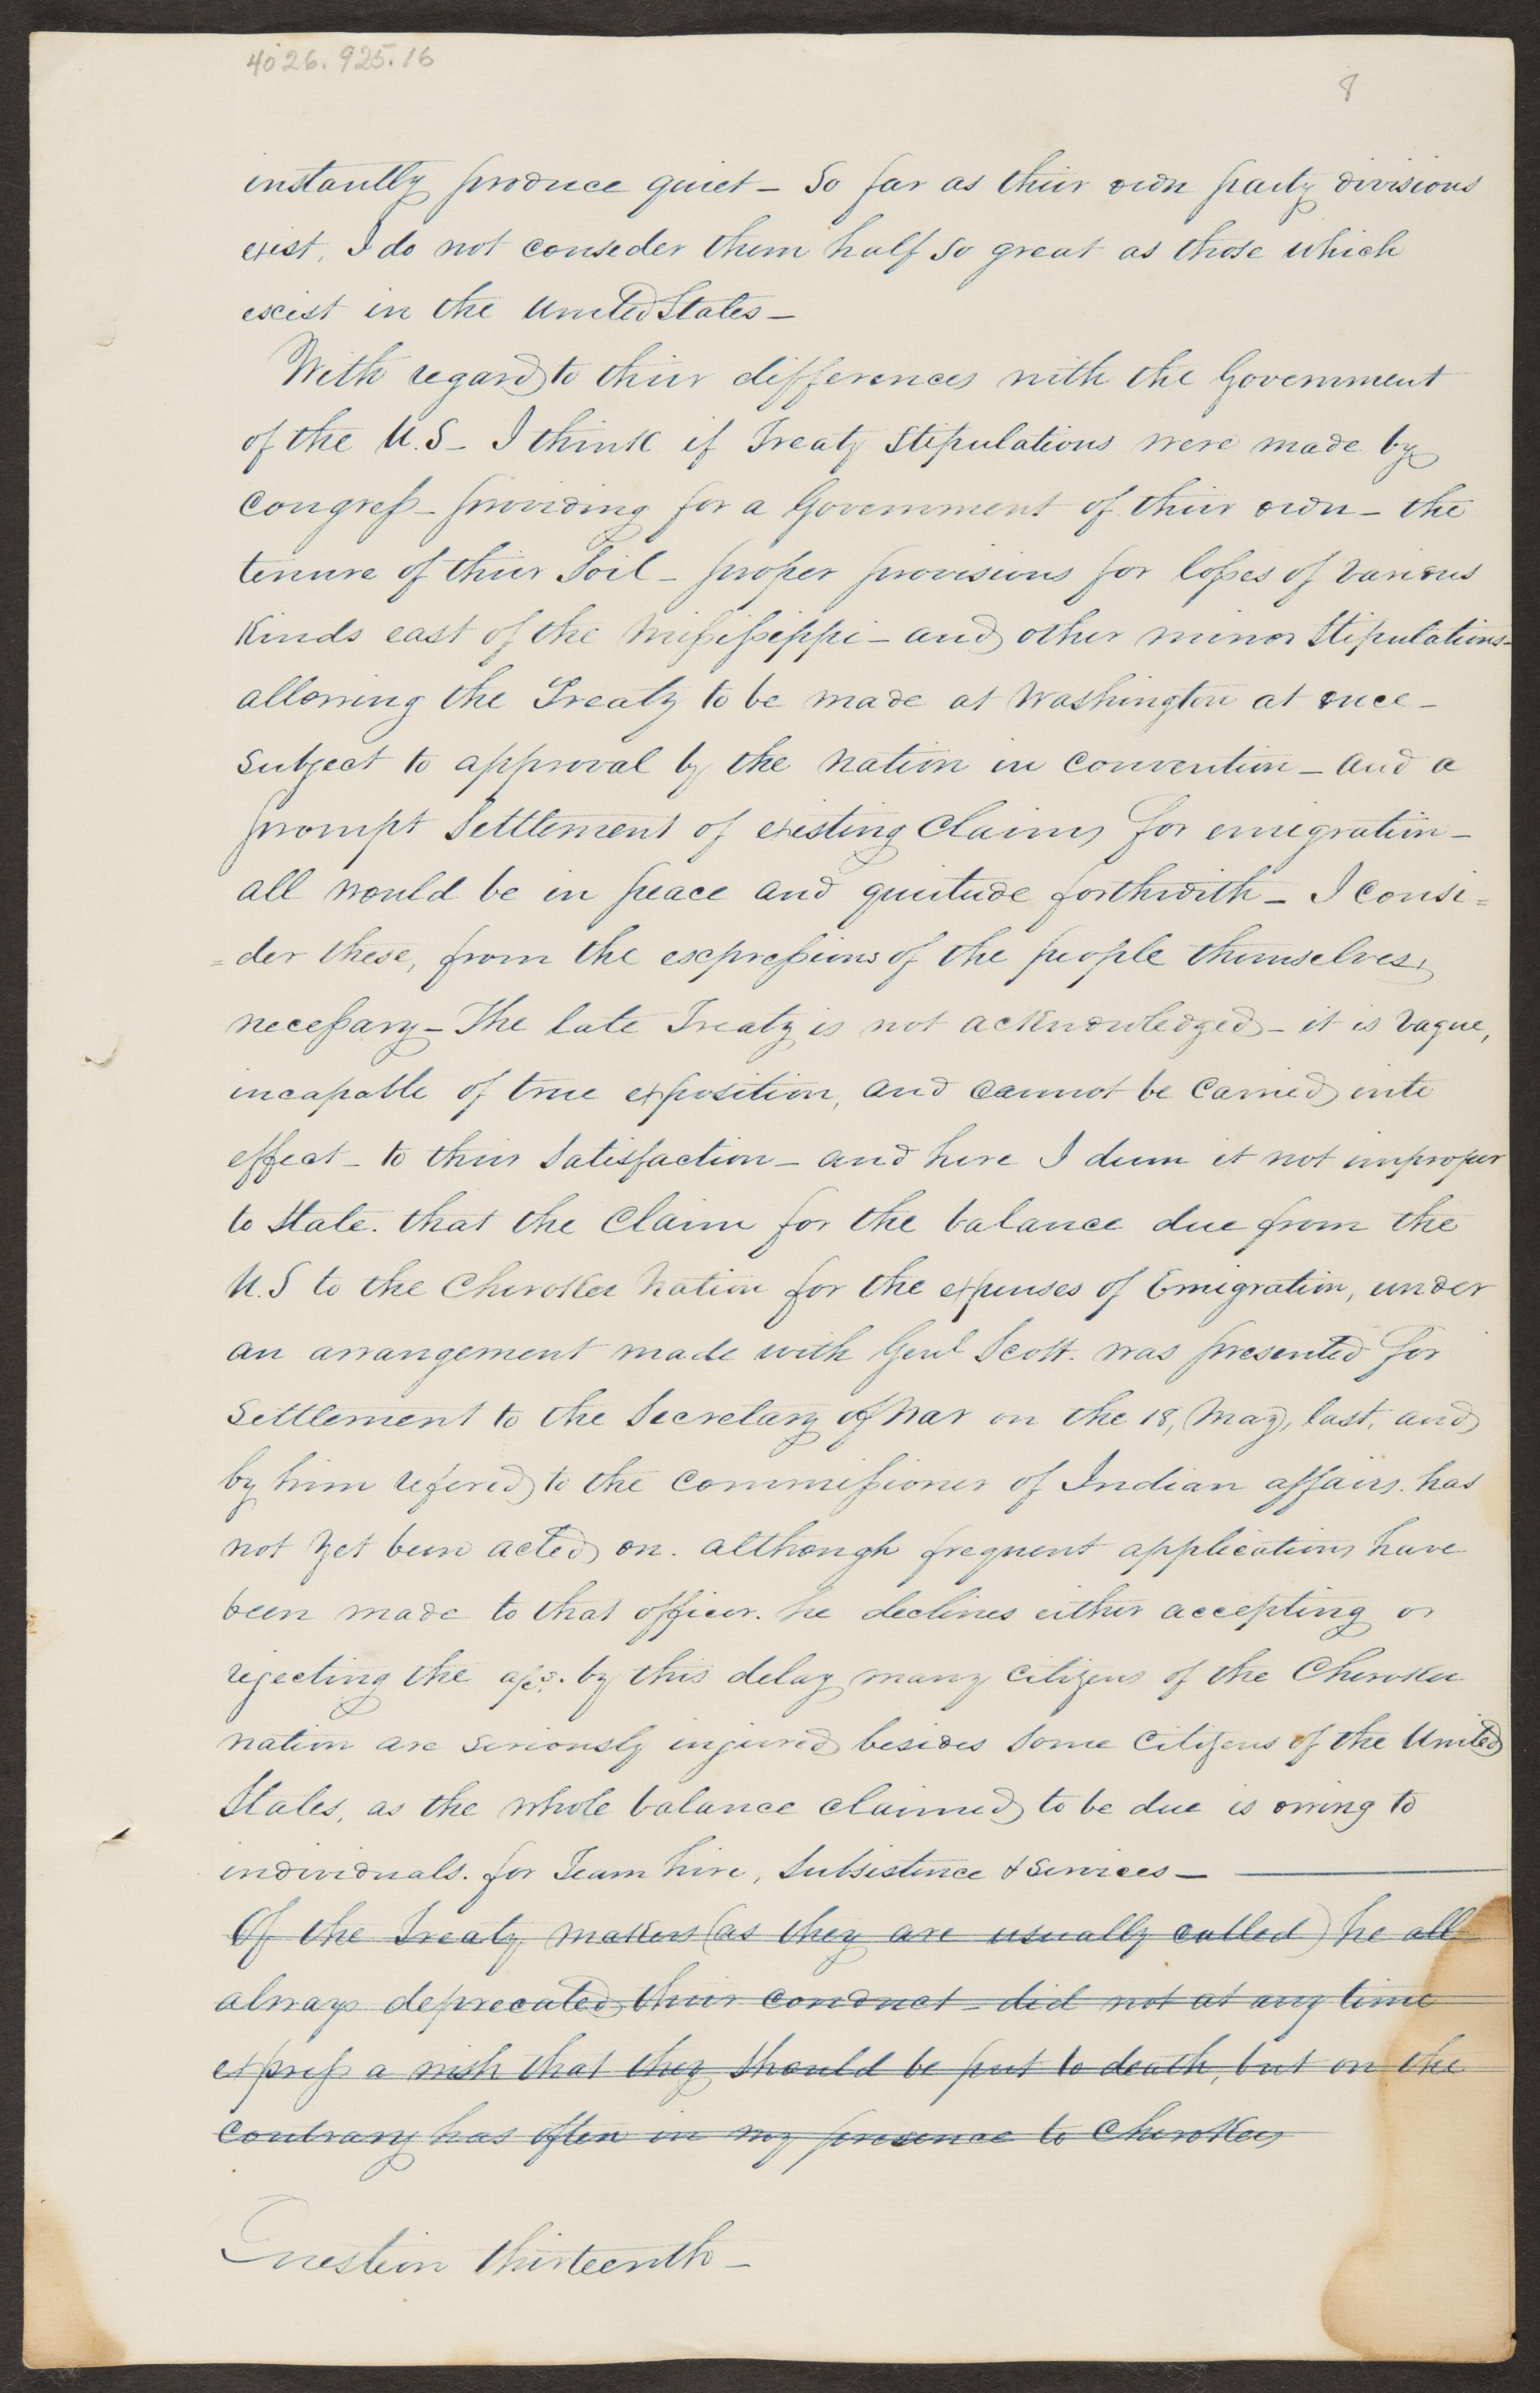 4026.925.16
8
instantly produce quiet - So far as thier own party divisions
exist, I do not conseder them half so great as those which
excist in the United States -
With regard to thier differences with the Government
of the U.S - I think if Treaty Stipulations were made by
Congress - providing for a Government of thier own - the
tenure of thier Soil - proper provisions for losses of various
Kinds east of the Mississeppi - and other minor Stipulations -
allowing the Treaty to be made at Washington at once -
Subject to approval by the Nation in Convention - and a
prompt Settlement of existing Claims for emigration -
all would be in peace and quietude forthwith - I consi =
= der these, from the excpressions of the people themselves,
necessary - The late Treaty is not acknowledged - it is vague,
incapable of true exposition, and cannot be Carried into
effect - to thier Satisfaction - and here I deem it not improper
to State. that the Claim for the balance due from the
U.S to the Cherokee Nation for the expenses of Emigration, under
an arrangement made with Genl Scott. was presented for
Settlement to the Secretary of War on the 18, May, last, and
by him refered to the Commissioner of Indian affairs. has
not yet been acted on. although frequent applications have
been made to that officer. he declines either accepting or
rejecting the by this delay many Citizens of the Cherokee
nation are seriously injured besides Some Citizens of the United
States, as the whole balance claimed to be due is owing to
individuals. for Team hire, Subsistence & Services -
Of the Treaty makers (as they are usually called) he all
always deprecated thier conduct - did not at any time
express a wish that they should be put to death, but on the
contrary has often in my presence to Cherokees
Question thirteenth -